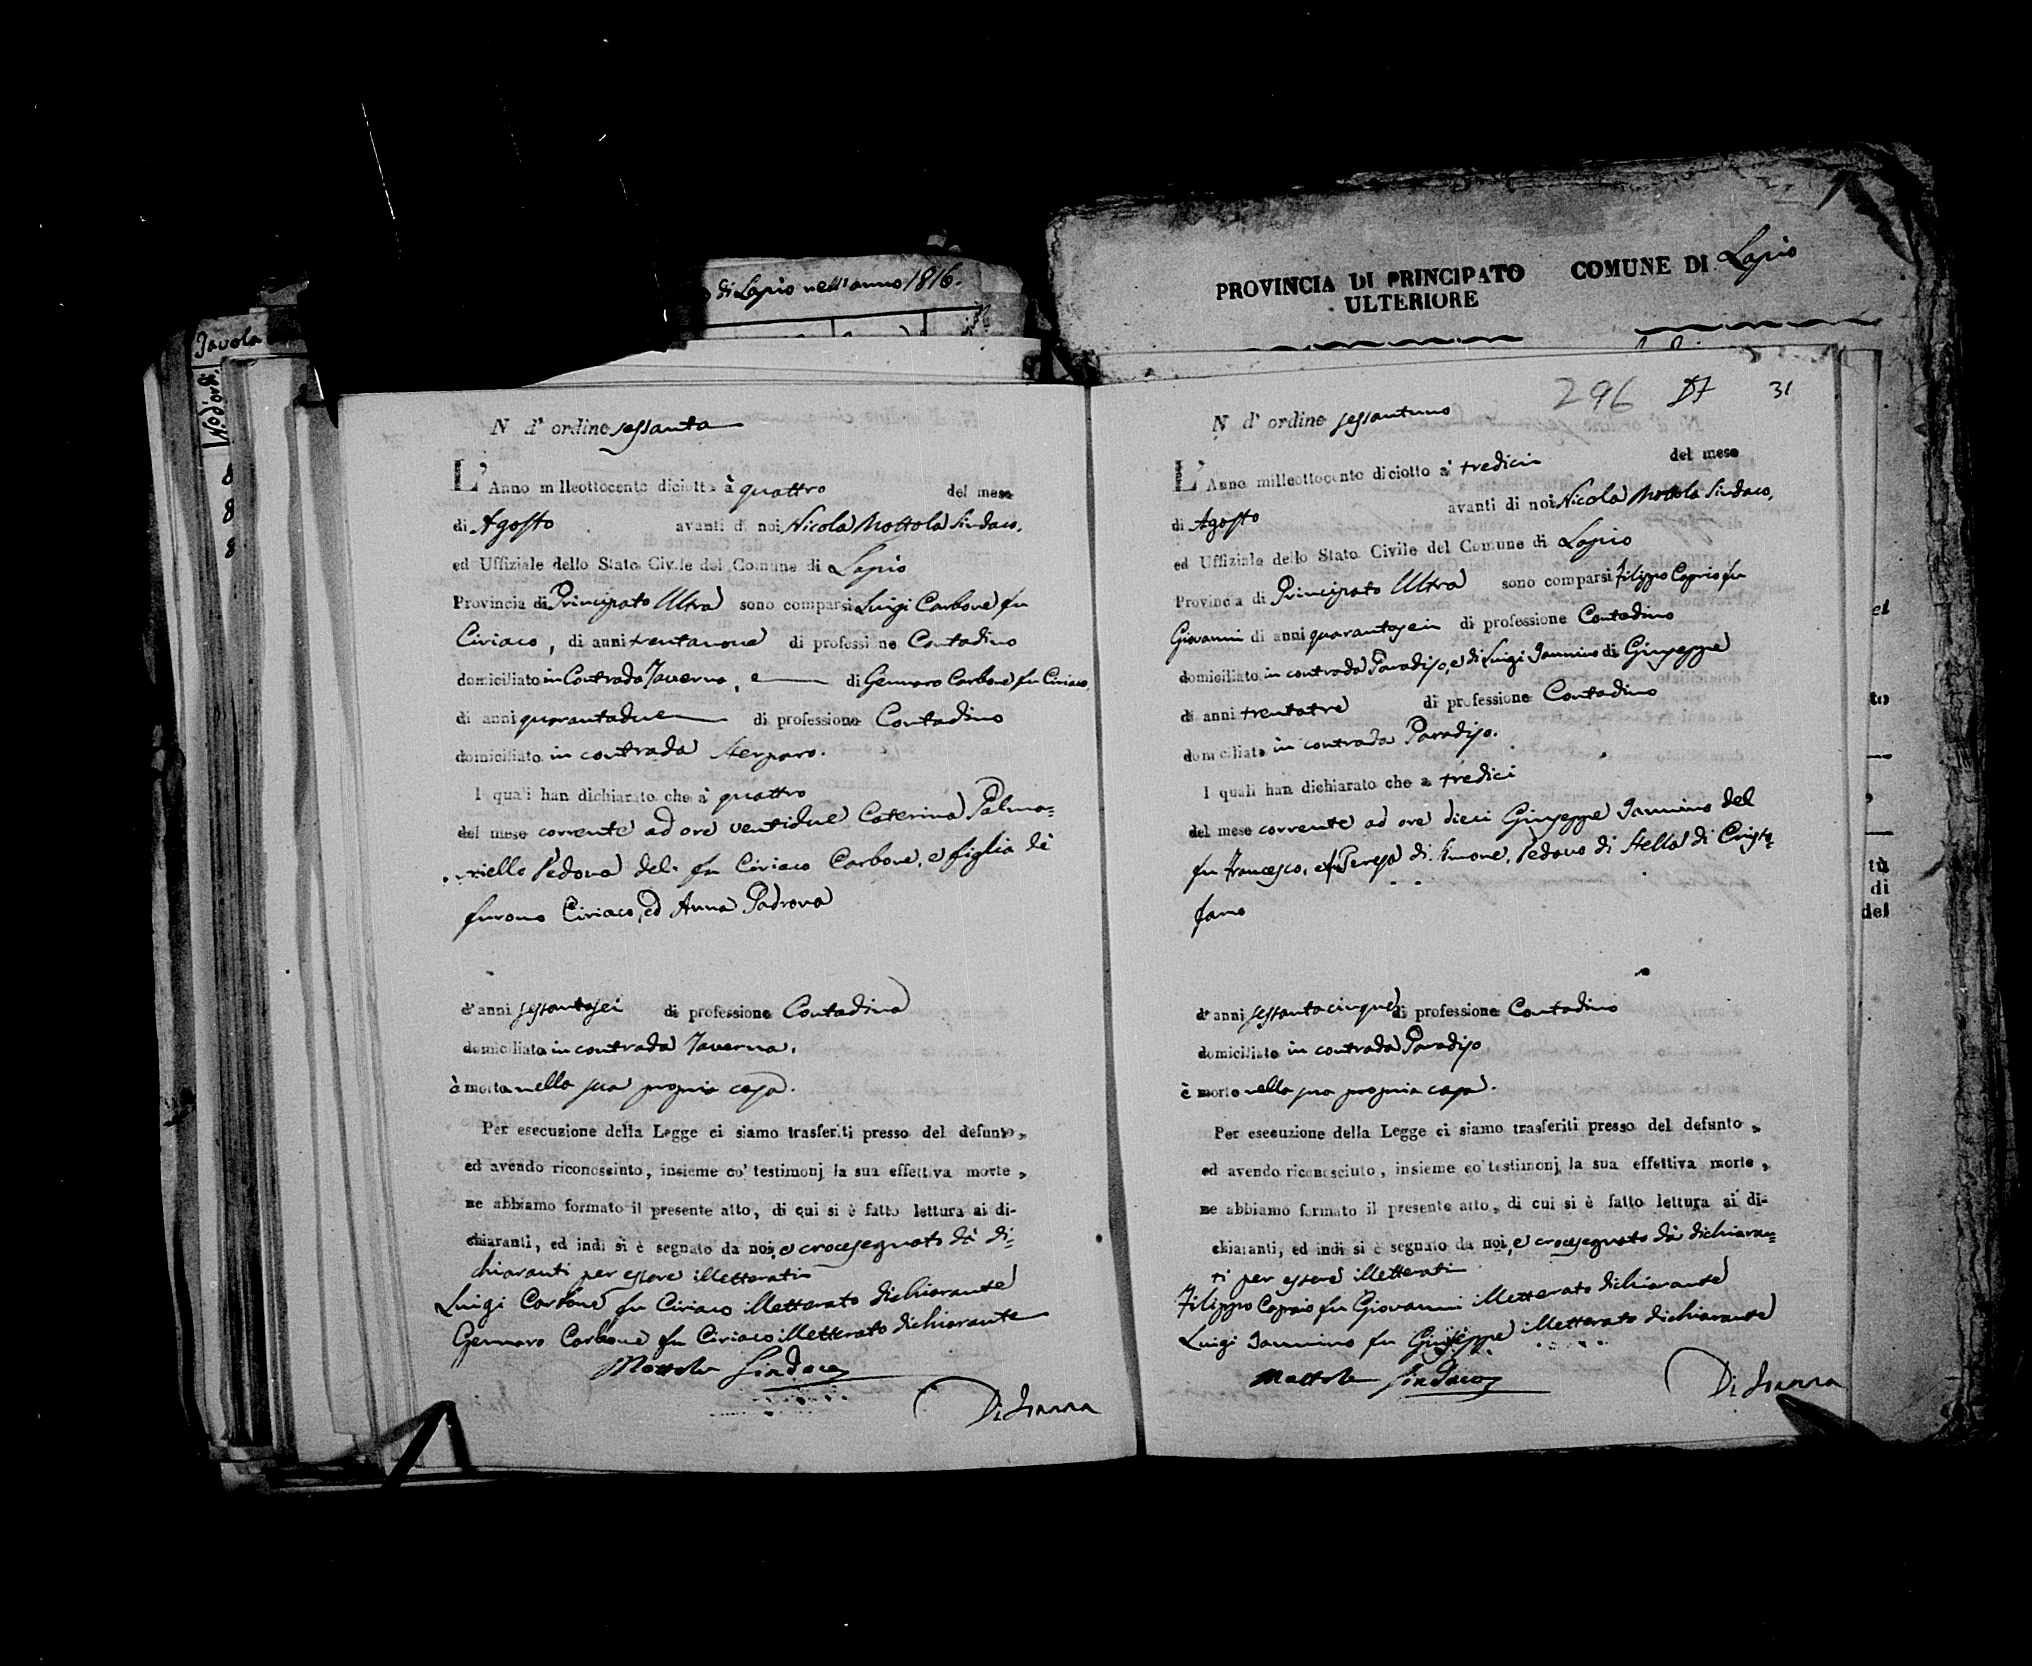 di Lapio nell'anno 1816.
Tavola
No. d'ordi.
8
8
8
PROVINCIA DI PRINCIPATO
ULTERIORE
COMUNE DI Lapio
N d' ordine sessanta
L'Anno milleottocento diciotto à quattro del mese
di Agosto avanti di noi Nicola Mottola Sindaco,
ed Uffiziale dello Stato Civile del Comune di Lapio
Provincia di Principato Ultra sono comparsi Luigi Carbone fu
Ciriaco, di anni trentanove di professione Contadino
domiciliato in Contrada Taverna, e di Gennaro Carbone fu Ciriaco,
di anni quarantadue di professione Contadino
domiciliato in contrada
I quali han dichiarato che a' quattro
del mese corrente ad ore ventidue Caterina Palma=
riello Vedova del fu Ciriaco Carbone, e figlia de
furono Ciriaco, ed Anna Padrova
d'anni sessantasei di professione Contadina
domiciliata in contrada Taverna.
è morta nella sua propria casa.
Per esecuzione della Legge ci siamo trasferiti presso del defunto,
ed avendo riconosciuto, insieme co' testimonj la sua effettiva morte,
ne abbiamo formato il presente atto, di cui si è fatto lettura ai di-
chiaranti, ed indi si è segnato da noi, e crocesegnato dà di=
chiaranti per essere illetterati
Luigi Carbone fu Ciriaco illetterato dichiarante
Gennaro Carbone fu Ciriaco illetterato dichiarante
Mottola Sindaco
296 31
N d' ordine sessantuno
L'Anno milleottocento diciotto a' tredici del mese
di Agosto avanti di noi Nicola Mottola Sindaco,
ed Uffiziale dello Stato Civile del Comune di Lapio
Provincia di Principato Ultra sono comparsi Filippo Caprio fu
Giovanni di anni quarantasei di professione Contadino
domiciliato in contrada Paradiso, e di Luigi Iannino di Giuseppe
di anni trentatre di professione Contadino
domiciliato in contrada Paradiso.
I quali han dichiarato che a tredici
del mese corrente ad ore dieci Giuseppe Iannino del
fu Francesco, e fu Teresa di Simone, Vedovo di Stella di Cristo=
fano
d'anni sessantacinque di professione Contadino
domiciliato in contrada Paradiso
è morto nella sua propria casa.
Per esecuzione della Legge ci siamo trasferiti presso del defunto,
ed avendo riconosciuto, insieme co' testimonj la sua effettiva morte,
ne abbiamo formato il presente atto, di cui si è fatto lettura ai di-
chiaranti, ed indi si è segnato da noi, e crocesegnato dà dichiaran=
ti per essere illetterati
Filippo Caprio fu Giovanni illetterato dichiarante
Luigi Iannino fu Giuseppe illetterato dichiarante
Mottola Sindaco
el
to
tù
di
del